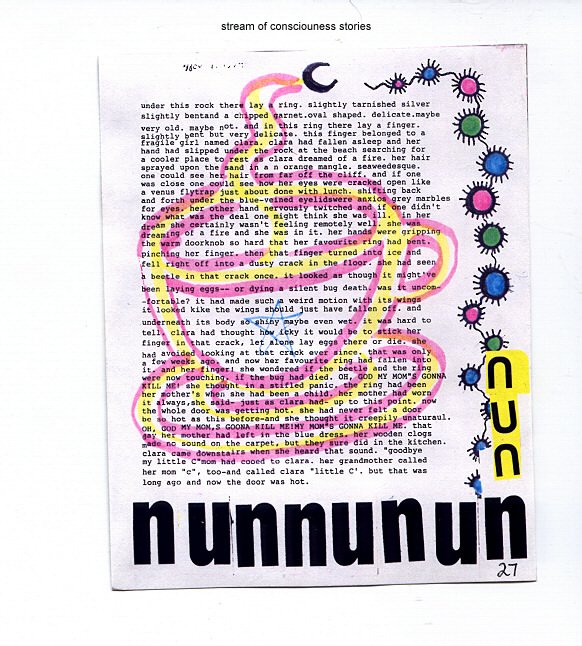 stream of consciouness stories
under this rock there lay a ring. slightly tarnished silver
slightly bentand a chipped garnet.oval shaped. delicate.maybe
very old. maybe not. and in this ring there lay a finger.
slightly bent but very delicate. this finger belonged to a
fragile girl named clara. clara had fallen asleep and her
hand had slipped under the rock at the beach searching for
a cooler place to rest a clara dreamed of a fire. her hair
sprayed upon the sand in a n orange mangle. seaweedesque.
one could see her hair from far off the cliff. and if one
was close one could see how her eyes were cracked open like
a venus flytrap just about done with lunch. shifting back
and forth under the blue-veined eyelidswere anxios grey marbles
for eyes. her other hand nervously twitched and if one didn't
know what was the deal one might think she was ill. in her
dream she certainly wasn't feeling remotely well. she was
dreaming of a fire and she was in it. her hands were gripping
the warm doorknob so hard that her favourite ring had bent.
pinching her finger. then that finger turned into ice and
fell right off into a dusty crack in the floor. she had seen
beetle in that crack once. it looked as though it might've
been laying eggs-- or dying a silent bug death. was it uncom-
fortable? it had made such a weird motion with its wings
it looked kike the wings should just have fallen off. and
underneath its body so shiny maybe even wet. it was hard to
tell. clara had thought how icky it would be to stick her
finger in that crack, let alone lay eggs there or die. she
had avoided looking at that crack ever since. that was only
a few weeks ago. and now her favourite ring had fallen into
it. and her finger. she wondered if the beetle and the ring
were now touching. if the bug had died. OH, GOD MY MOM'S GONNA
KILL ME! she thought in a stifled panic. the ring had been
her mother's when she had been a child. her mother had worn
it always,she said- just as clara had- up to this point. now
the whole door was getting hot. she had never felt a door
be as hot as this before-and she thought it creepily unaturaul.
OH, GOD MY MOM,S GOONA KILL ME!MY MOM"S GONNA KILL ME. that
day her mother had left in the blue dress. her wooden clogs
made no sound on the carpet, but they sure did in the kitchen.
clara came downstairs when she heard that sound. "goodbye
my little C"mom had cooed to clara. her grandmother called
her mom "c", too-and called clara "little C'. but that was
long ago and now the door was hot.
nun
nunnunun
27